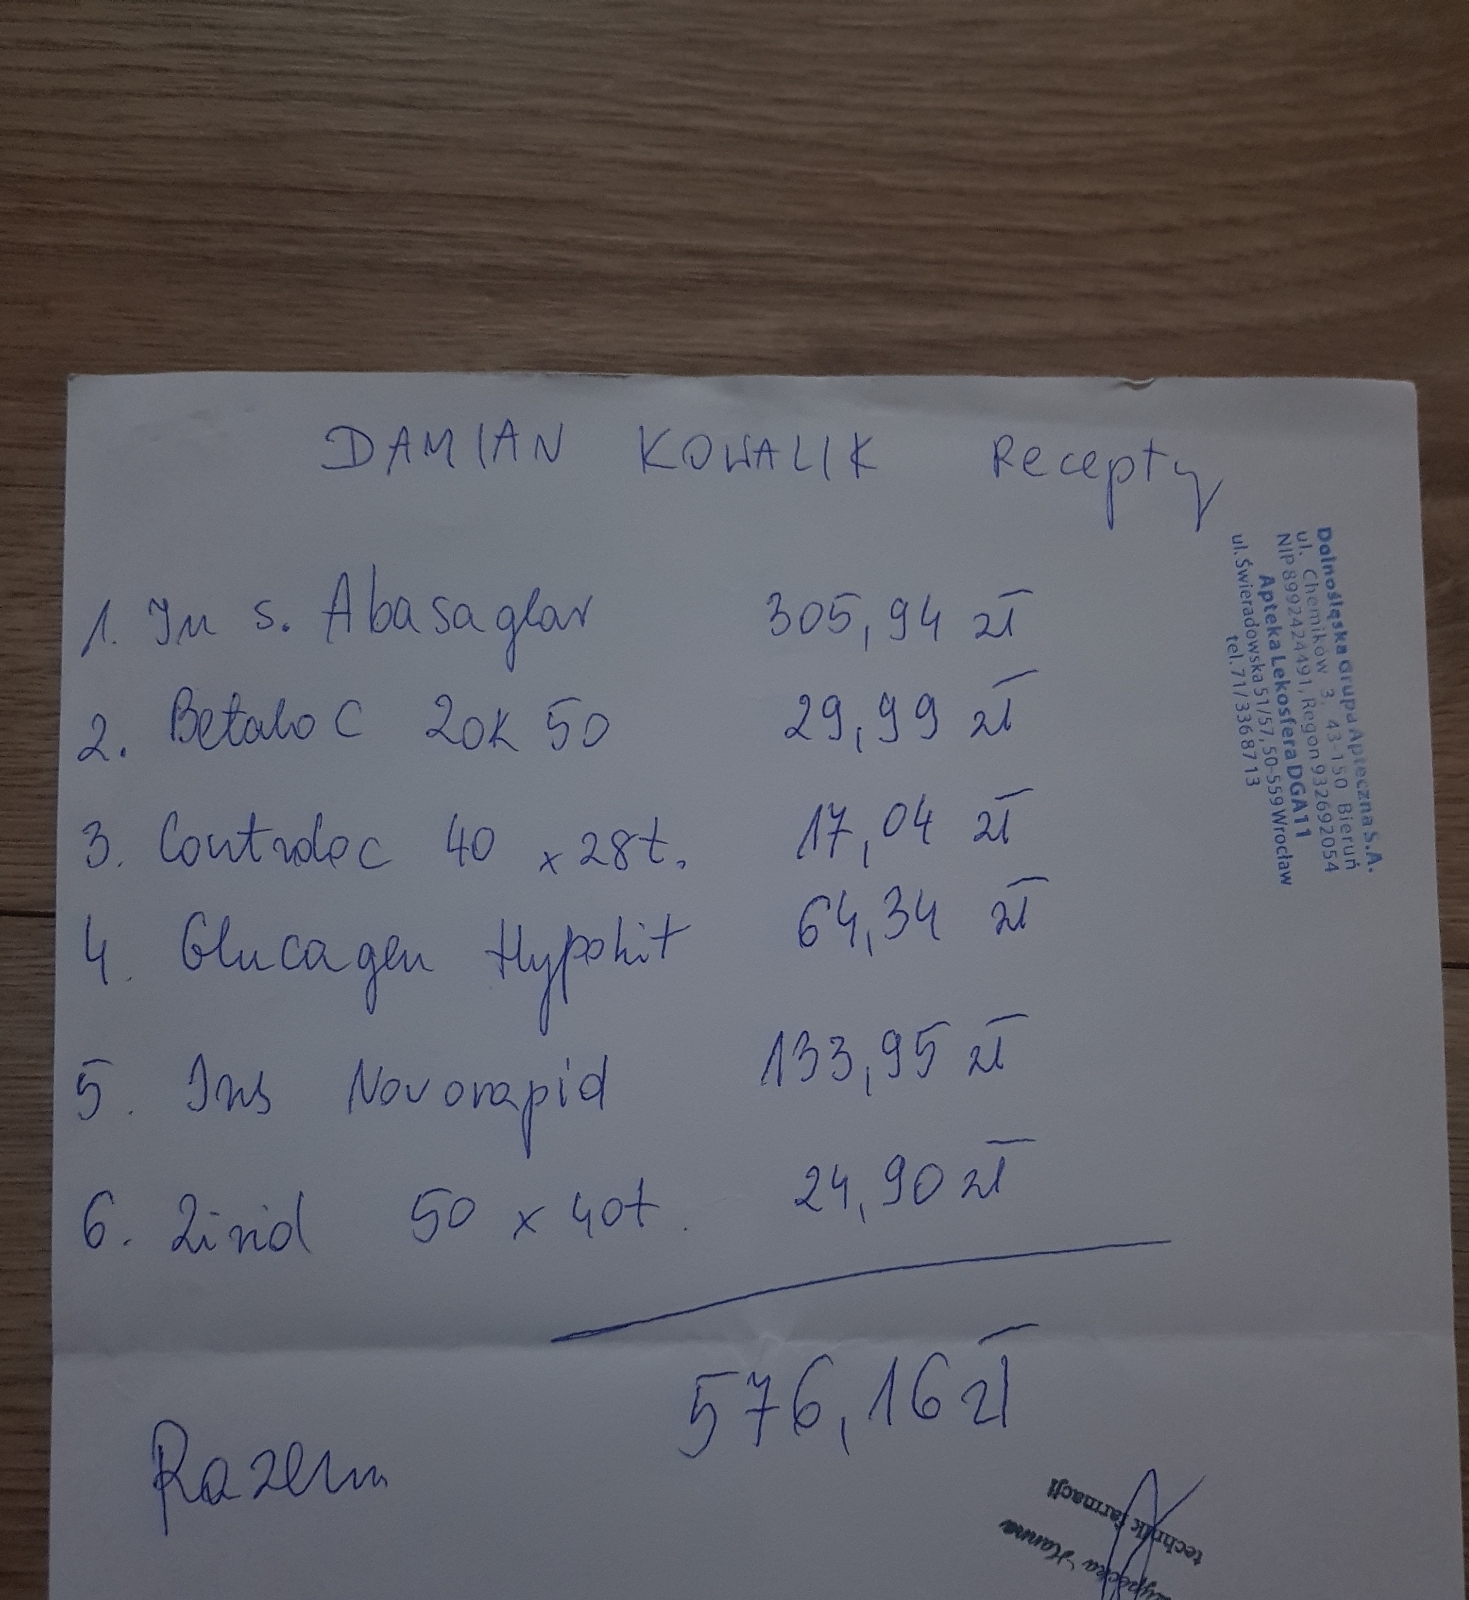 DAMIAN KOWALIK Recepty
1. In s. Abasaglar 305,94 zł
2. Betaloc ZOK 50 29,99 zł
3. Controloc 40 x 28t. 17,04 zł
4. Glucagen Hypokit 64,34 zł
5. Ins Novorapid 133,95 zł
6. Zirid 50 x 40t. 24,90 zł
Razem 576,16 zł
Dolnośląska Grupa Apteczna S.A.
ul. Chemików 3, 43-150 Bieruń
NIP 8992424491, Regon 932692054
Apteka Lekosfera DGA11
ul. Świeradowska 51/57, 50-559 Wrocław
tel. 71/3368713
technik farmacji
Hanna